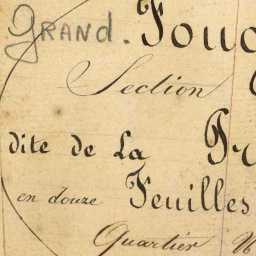 GRAND.
Section
dite de La
en douze Feuilles
Quartier